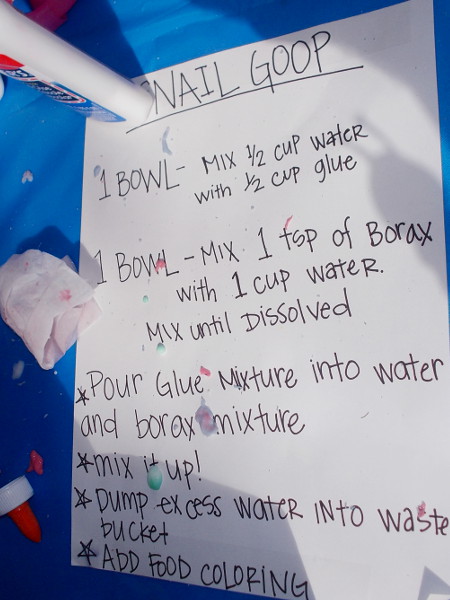 SNAIL GOOP
1 BOWL - MIX 1/2 CUP WATER
with 1/2 CUP glue
1 BOWL - MIX 1 tsp of Borax
with 1 CUP WATER.
MIX until DISSOLVED
*Pour Glue Mixture into water
and borax mixture
*mix it up!
*DUMP excess WATER INTO waste
bucket
*ADD FOOD COLORING